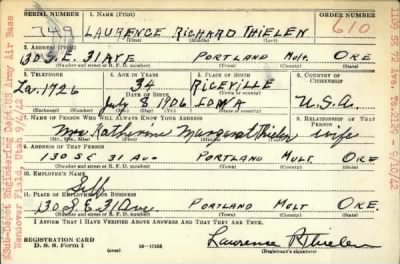 SERIAL NUMBER 1. NAME (Print) ORDER NUMBER
749 LAURENCE RICHARD THIELEN 610
(First) (Middle) (Last)
2. ADDRESS (Print)
130 S.E. 31 AVE PORTLAND MULT. ORE
(Number and street or R. F. D. number) (Town) (County) (State)
3. TELEPHONE 4. AGE IN YEARS 5. PLACE OF BIRTH 6. COUNTRY OF CITIZENSHIP
La. 1726 34 RICEVILLE
DATE OF BIRTH (Town or county)
July 8 1906 IOWA U.S.A.
(Mo.) (Day) (Yr.) (State or country)
7. NAME OF PERSON WHO WILL ALWAYS KNOW YOUR ADDRESS 8. RELATIONSHIP OF THAT PERSON
Mrs Katherine Margaret Thielen wife
(Mr., Mrs., Miss) (First) (Middle) (Last)
9. ADDRESS OF THAT PERSON
130 S E 31 Ave PORTLAND MULT. ORE
(Number and street or R. F. D. number) (Town) (County) (State)
10. EMPLOYER'S NAME
Self
11. PLACE OF EMPLOYMENT OR BUSINESS
130 S.E. 31 Ave. PORTLAND MULT ORE.
(Number and street or R. F. D. number) (Town) (County) (State)
I AFFIRM THAT I HAVE VERIFIED ABOVE ANSWERS AND THAT THEY ARE TRUE.
REGISTRATION CARD
D. S. S. Form 1 (over) 16—17105 Laurence R Thielen
(Registrant's signature)
Sub-Depot Engineering Dept. US Army Air Base
Wendover Field, Utah 9/1/42